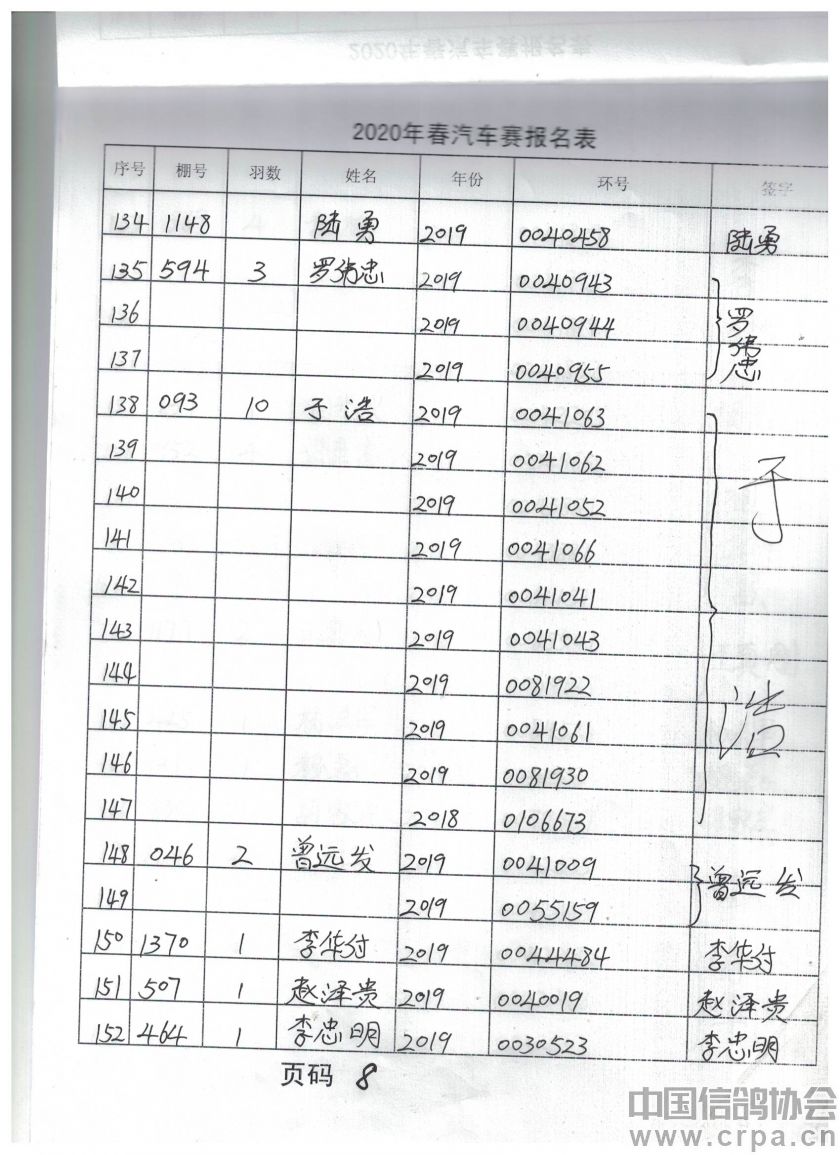 2020年春汽车赛报名表
序号 棚号 羽数 姓名 年份 环号 签字
134 1148 陆勇 2019 0040458 陆勇
135 594 3 罗伟忠 2019 0040943 罗伟忠
136 2019 0040944
137 2019 0040955
138 093 10 于浩 2019 0041063 于浩
139 2019 0041062
140 2019 0041052
141 2019 0041066
142 2019 0041041
143 2019 0041043
144 2019 0081922
145 2019 0041061
146 2019 0081930
147 2018 0106673
148 046 2 曾远发 2019 0041009 曾远发
149 2019 0055159
150 1370 1 李华付 2019 0044484 李华付
151 507 1 赵泽贵 2019 0040019 赵泽贵
152 464 1 李忠明 2019 0030523 李忠明
页码 8
中国信鸽协会
www.crpa.cn